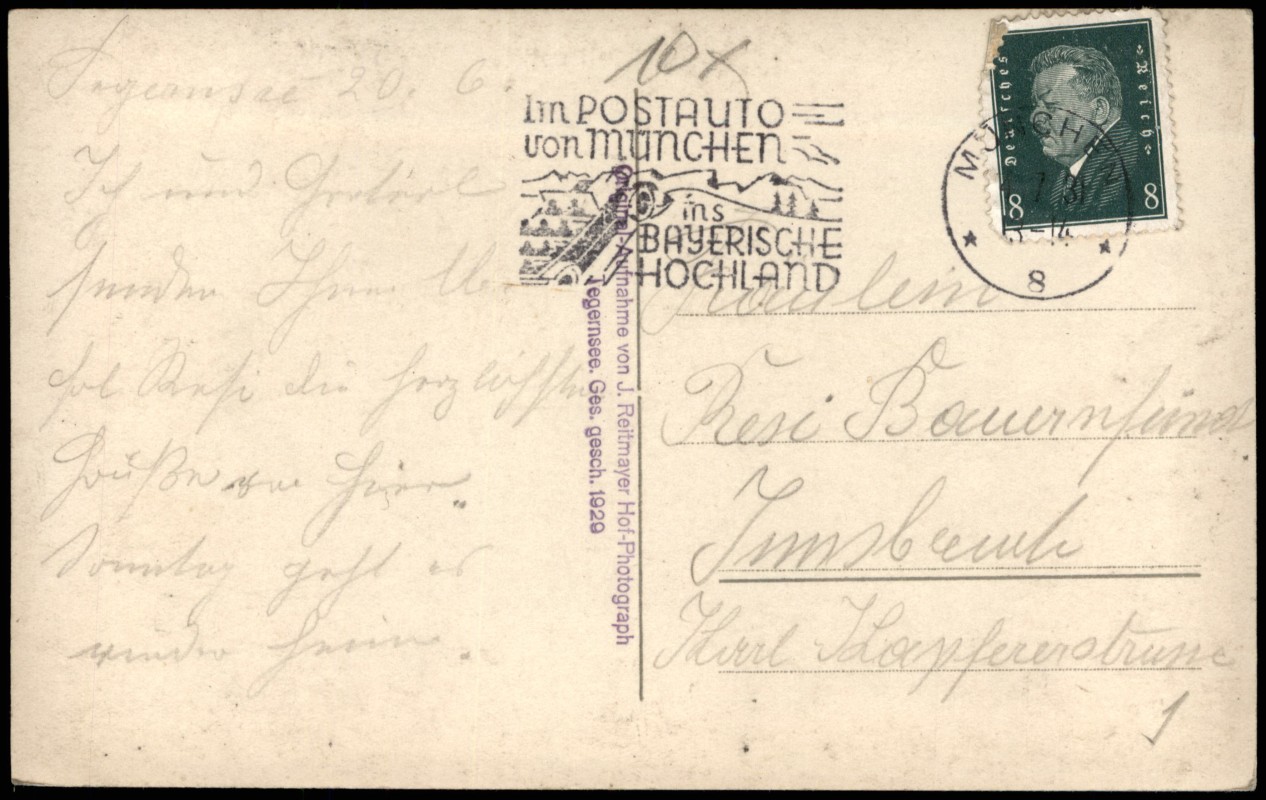 Tegernsee 20. 6.
Ich und
senden Ihnen
Resi die herzlichsten
Grüße von hier.
Sonntag geht es
wieder heim.
10x
Im POSTAUTO
von MÜNCHEN
ins
BAYERISCHE
HOCHLAND
Original-Aufnahme von J. Reitmayer Hof-Photograph
Tegernsee. Ges. gesch. 1929
Deutsches Reich
8 8
MÜNCHEN 2
7 31
8
Fräulein
Resi Bauernfeind
Innsbruck
Karl Kapfererstrasse
1